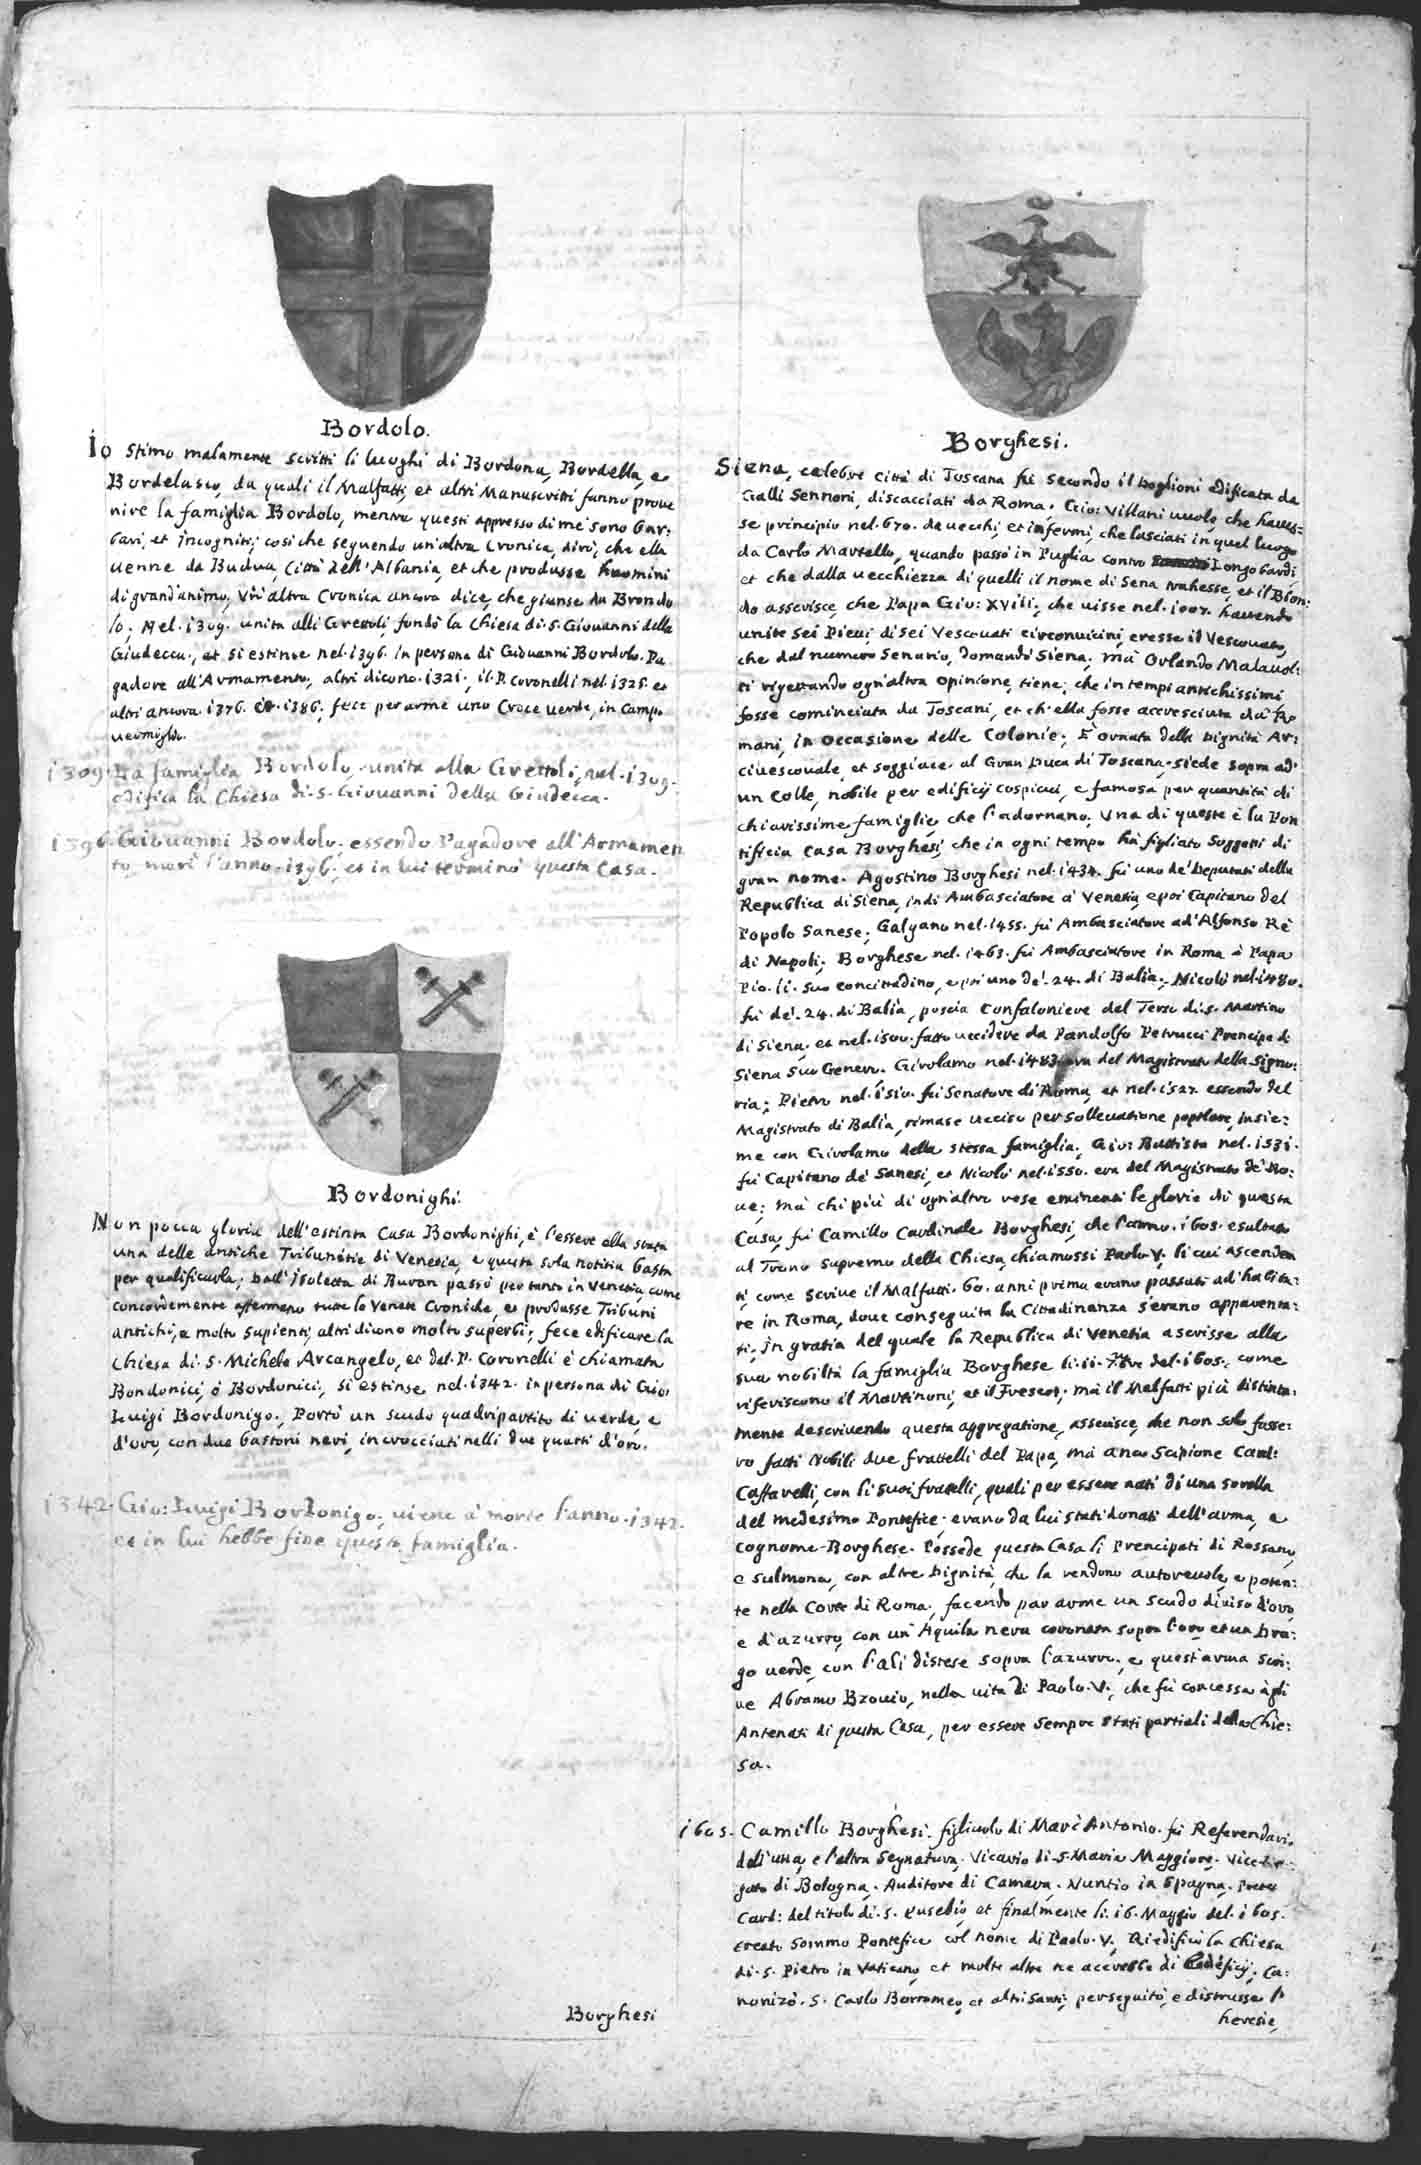 Bordolo.
Io stimo malamente scritti li luoghi di Bordona, Bordella, e
Bordelasco, da quali il Malfatti, et altri Manuscritti fanno prove
nire la famiglia Bordolo, mentre questi appresso di me sono bar:
bari, et incogniti; cosi che seguendo un'altra Cronica, dirò, che ella
uenne da Budua, Città dell'Albania, et che produsse huomini
di grand'animo, Vn'altra Cronica ancora dice, che giunse da Brondo
lo; Nel.1309. unita alli Grettoli, fondò la Chiesa di.S.Giouanni della
Giudecca, et si estinse nel.1396. in persona di Giouanni Bordolo. Pa
gadore all'Armamento, altri dicono.1321., il.P.Coronelli nel.1325. et
altri ancora.1376. et.1386., fece per arme una Croce uerde, in campo
uermiglio.
1309. La famiglia Bordolo, unita alla Grettoli, nel.1309.
edifica la Chiesa di.S.Giouanni della Giudecca.
1396. Giouanni Bordolo. essendo Pagadore all'Armamen
to, morì l'anno.1396., et in lui terminò questa Casa.
Bordonighi.
Non pocca gloria dell'estinta Casa Bordonighi, è l'essere ella stata
una delle antiche Tribunitie di Venetia, e questa sola notitia basta
per qualificarla; Dall'Isoletta di Buran passò per tanto in Venetia, come
concordemente affermano tutte le Venete Croniche, et produsse Tribuni
antichi, e molto sapienti, altri dicono molto superbi; fece edificare la
Chiesa di.S.Michele Arcangelo, et dal.P.Coronelli è chiamata
Bondonici, ò Bordonici, si estinse nel.1342. in persona di Gio:
Luigi Bordonigo., Portò un scudo quadripartito di uerde, e
d'oro, con due bastoni neri, incrocciati nelli due quarti d'oro.
1342. Gio: Luigi Bordonigo, uiene à morte l'anno.1342.
et in lui hebbe fine questa famiglia.
Borghesi
Borghesi.
Siena, celebre Città di Toscana fù secondo il Doglioni edificata da
Galli Sennoni, discacciati da Roma. Gio: Villani uuole, che haues=
se principio nel.670. de uecchi, et infermi, che lasciati in quel luogo
da Carlo Martello, quando passò in Puglia contro Longobardi
et che dalla uecchiezza di quelli il nome di Sena trahesse, et il Bion:
do asserisce, che Papa Gio: XVIII, che uisse nel.1007. hauendo
unite sei Pieui di sei Vescouati circonuicini, eresse il Vescouato,
che dal numero Senario, domandò Siena; mà Orlando Malauol:
ti rigettando ogn'altra opinione, tiene, che in tempi antichissimi
fosse cominciata da Toscani, et ch'ella fosse accresciuta da Ro
mani, in occasione delle Colonie; È ornata della Dignità Ar:
ciuescouale, et soggiace al Gran Duca di Toscana. siede sopra ad'
un Colle, nobile per edificij cospicui, e famosa per quantità di
chiarissime famiglie che l'adornano; Vna di queste è la Pon
tificia Casa Borghesi, che in ogni tempo hà figliato Soggetti di
gran nome. Agostino Borghesi nel.1434. fù uno de' Deputati della
Republica di Siena, indi Ambasciatore à Venetia, e poi Capitano del
Popolo Sanese; Galgano nel.1455. fù Ambasciatore ad'Alfonso Rè
di Napoli; Borghese nel.1463. fù Ambasciatore in Roma à Papa
Pio.II. suo concittadino, e poi uno de'.24. di Balia; Nicolò nel.1480.
fù de'.24. di Balia, poscia Confaloniere del Terzo di.S.Martino
di Siena. et nel.1500. fatto uccidere da Pandolfo Petrucci Prencipe di
Siena suo Genero. Girolamo nel.1483. era del Magistrato della Signo:
ria; Pietro nel.1510. fù Senatore di Roma, et nel.1527. essendo del
Magistrato di Balia, rimase ucciso per solleuatione popolare, insie=
me con Girolamo della stessa famiglia; Gio: Battista nel.1531.
fù Capitano de' Sanesi, et Nicolò nel.1550. era del Magistrato de' No:
ue; mà chi più di ogn'altro rese eminenti le glorie di questa
Casa, fù Camillo Cardinale Borghesi, che l'anno.1605. esaltato
al Trono supremo della Chiesa, chiamossi Paolo.V. li cui ascenden
ti, come scriue il Malfatti. 60. anni prima erano passati ad'habita=
re in Roma, doue conseguita la Cittadinanza s'erano apparenta=
ti; In gratia del quale la Republica di Venetia ascrisse alla
sua nobiltà la famiglia Borghese li.11. 7bre del.1605., come
riferiscono il Martinoni, et il Frescot; mà il Malfatti più distinta:
mente descriuendo questa aggregatione, asserisce, che non solo fosse=
ro fatti Nobili due fratelli del Papa, mà anco Scipione Card:
Caffarelli, con li suoi fratelli, quali per essere nati di una sorella
del medesimo Pontefice. erano da lui stati donati dell'arma, e
cognome Borghese. Possede questa Casa li Prencipati di Rossano,
e Sulmona, con altre Dignità, che la rendono autoreuole, e poten:
te nella Corte di Roma, facendo par arme un scudo diuiso d'oro,
e d'azurro, con un'Aquila nera coronata sopra l'oro et un Dra:
go uerde, con l'ali distese sopra l'azurro; e quest'arma scri:
ue Abramo Bzouio, nella uita di Paolo.V., che fù concessa à gli
Antenati di questa Casa, per essere sempre stati partiali della Chie:
sa.
1605. Camillo Borghesi. figliuolo di Marc'Antonio. fù Referendario
dell'una, e l'altra Segnatura. Vicario di.S.Maria Maggiore. Vice-Le=
gato di Bologna. Auditore di Camera. Nuntio in Spagna. Prete
Card: del titolo di.S.Eusebio, et finalmente li.16.Maggio del.1605.
creato Sommo Pontefice col nome di Paolo.V. Riedificò la Chiesa
di.S.Pietro in Vaticano, et molte altre ne accrebbe di edificij. Ca:
nonizò.S.Carlo Borromeo, et altri Santi, perseguitò, e distrusse l'
heresie,